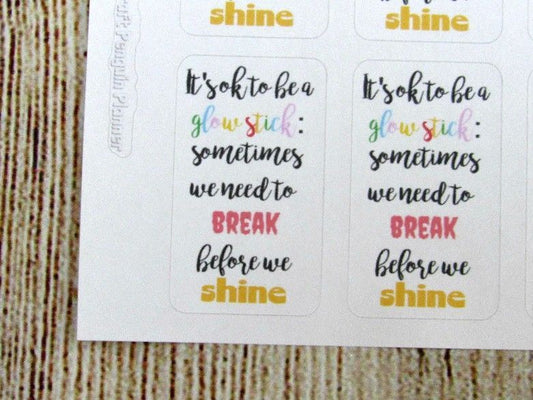 shine
before we
shine
It's ok to be a
glow stick:
sometimes
we need to
BREAK
before we
shine
It's ok to be a
glow stick:
sometimes
we need to
BREAK
before we
shine
Penguin Planner